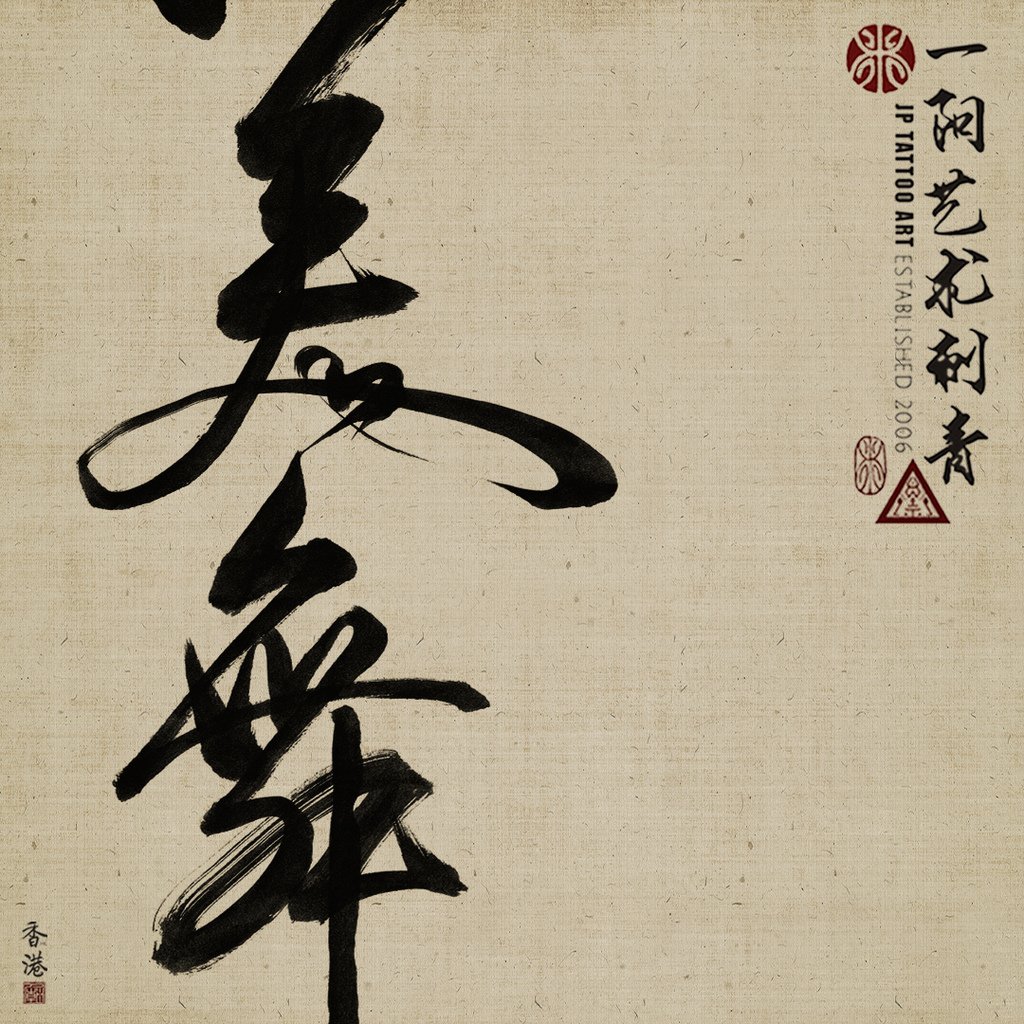 一阿艺术刺青
JP TATTOO ART ESTABLISHED 2006
舞
香港